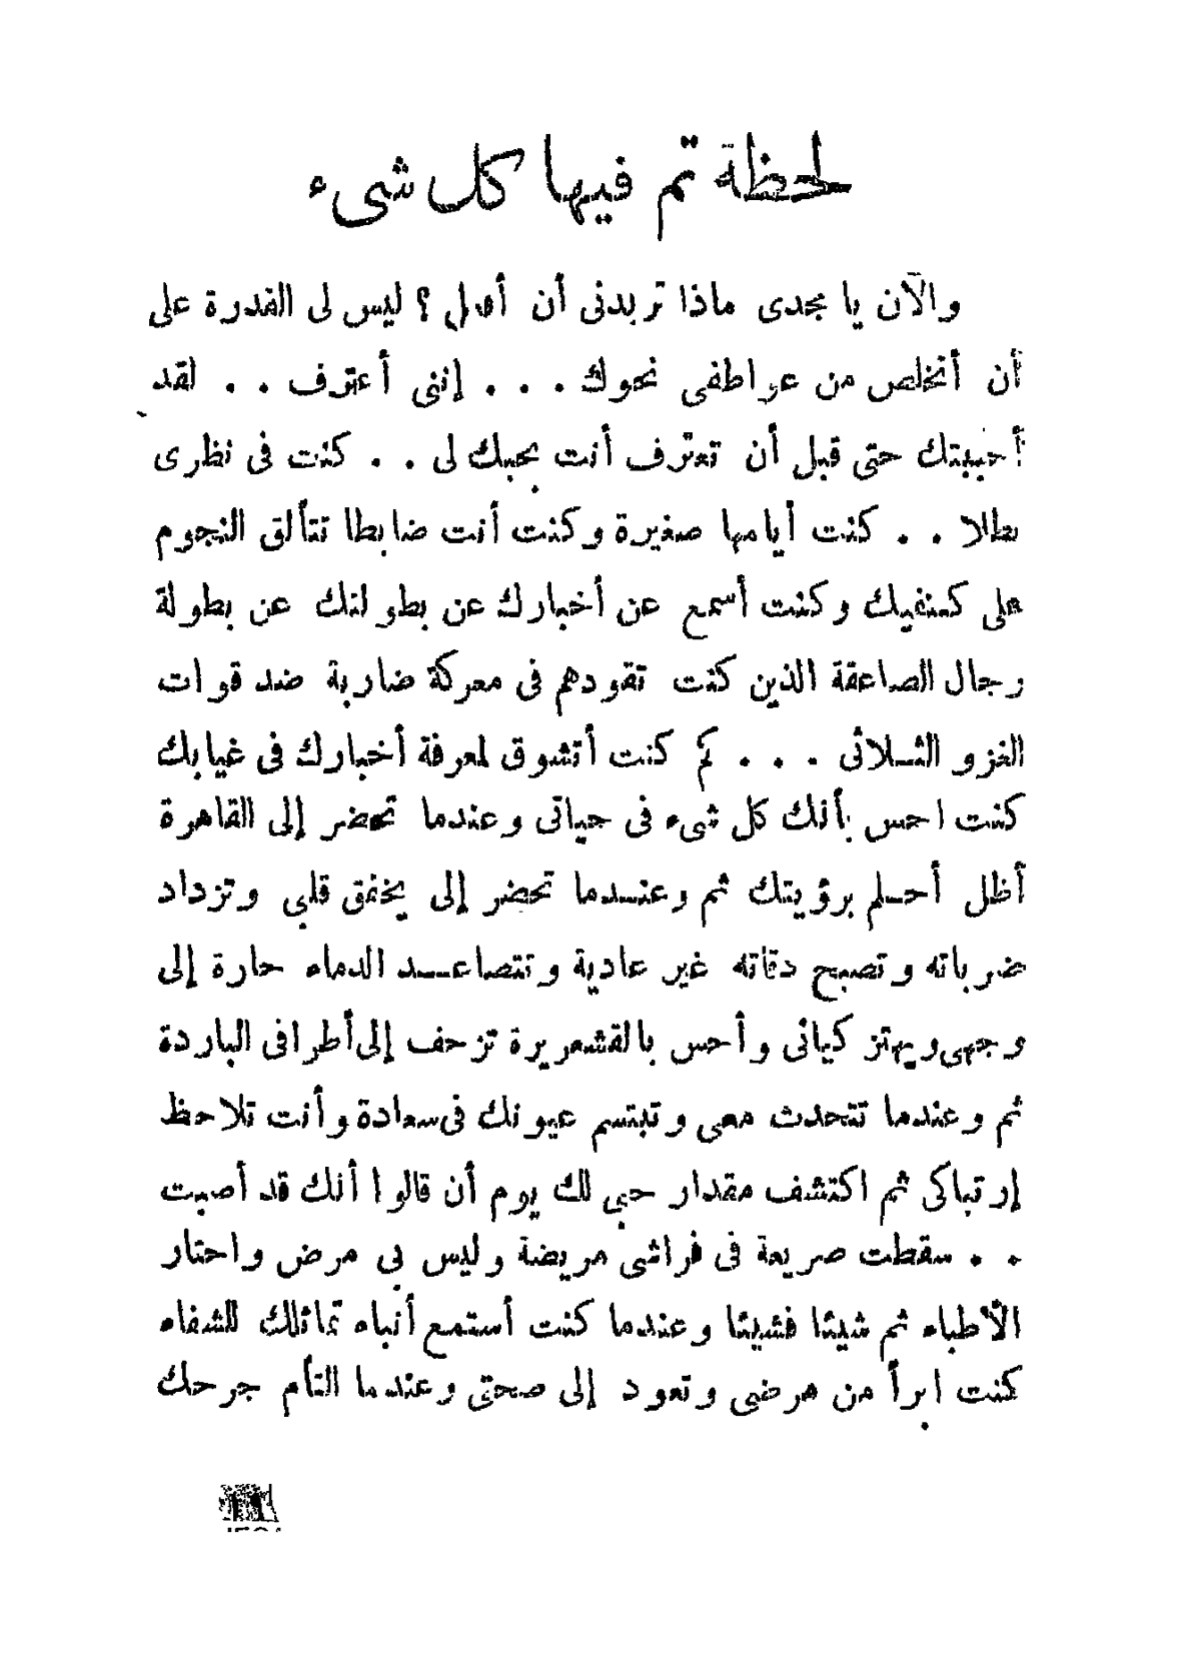 لحظة تم فيها كل شىء
والآن يا مجدى ماذا تريدنى أن أفعل ؟ ليس لى القدرة على
أن أتخلص من عواطفى نحوك . . . إننى أعترف . . لقد
أحببتك حتى قبل أن تعترف أنت بحبك لى . . كنت فى نظرى
بطلا . . كنت أيامها صغيرة وكنت أنت ضابطا تتألق النجوم
على كتفيك وكنت أسمع عن أخبارك عن بطولتك عن بطولة
رجال الصاعقة الذين كنت تقودهم فى معركة ضارية ضد قوات
الغزو الثلاثى . . . كم كنت أتشوق لمعرفة أخبارك فى غيابك
كنت احس بأنك كل شىء فى حياتى وعندما تحضر إلى القاهرة
أظل أحلم برؤيتك ثم وعندما تحضر إلى يخفق قلبى وتزداد
ضرباته وتصبح دقاته غير عادية وتتصاعد الدماء حارة إلى
وجهى ويهتز كيانى وأحس بالقشعريرة تزحف إلى أطرافى الباردة
ثم وعندما تتحدث معى وتبتسم عيونك فى سعادة وأنت تلاحظ
إرتباكى ثم اكتشف مقدار حبى لك يوم أن قالوا أنك قد أصبت
. . سقطت صريعة فى فراشى مريضة وليس بى مرض واحتار
الأطباء ثم شيئا فشيئا وعندما كنت أستمع أنباء تماثلك للشفاء
كنت ابرأ من مرضى وتعود إلى صحتى وعندما التأم جرحك